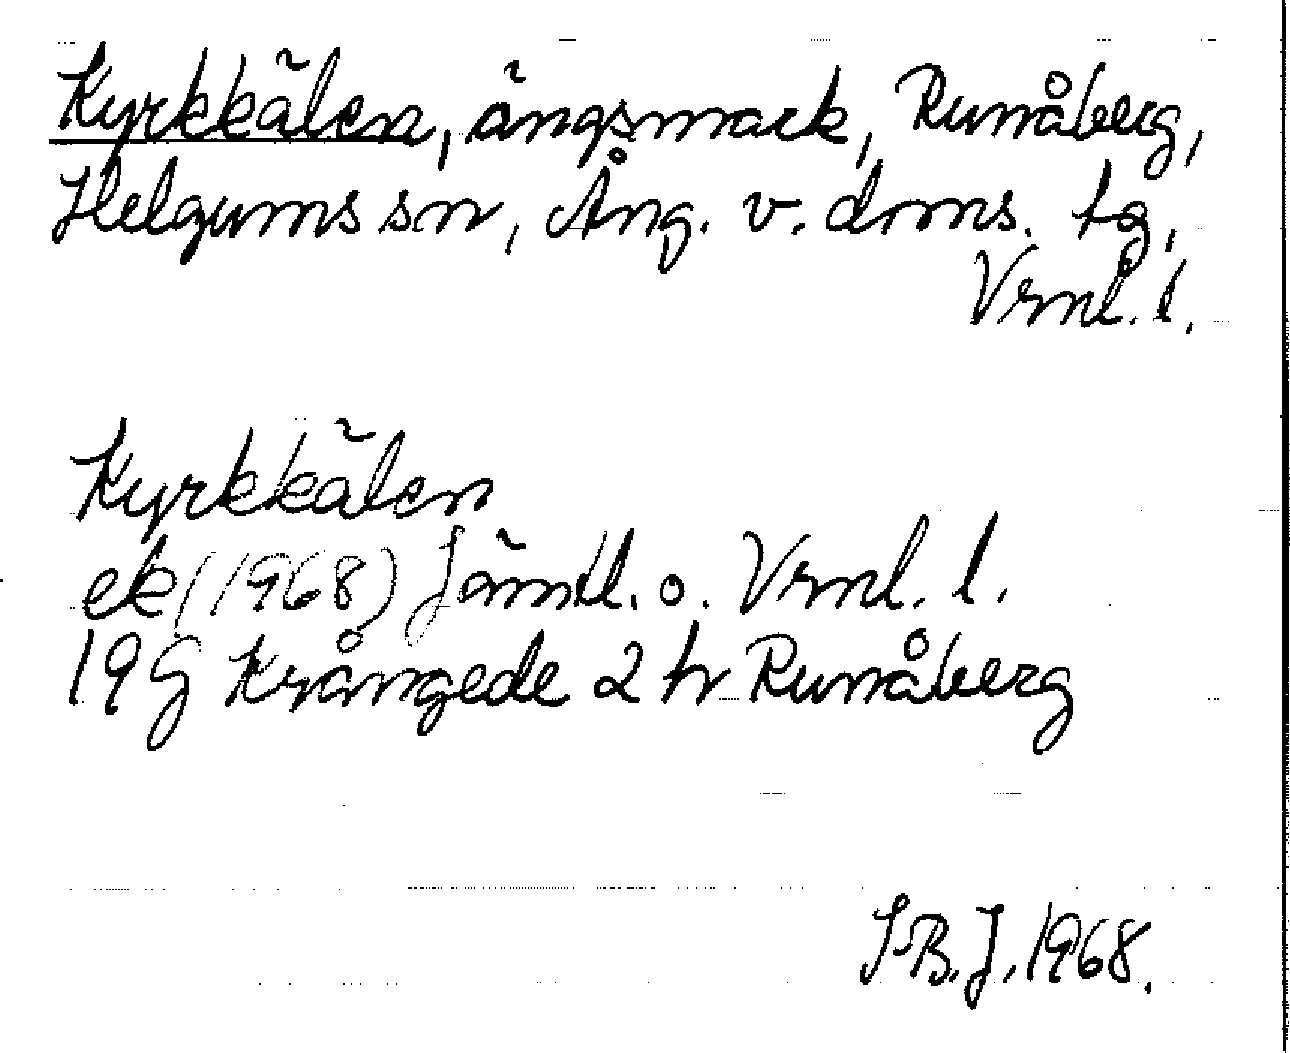 Kyrkkälen, ängsmark, Runåberg,
Helgums sn, Ång. v. dms. tg,
Vrnl. l.
Kyrkkälen
ek (1968) Jämtl. o. Vrnl. l.
19 G Krångede 2 h Runåberg
S.B.J. 1968.